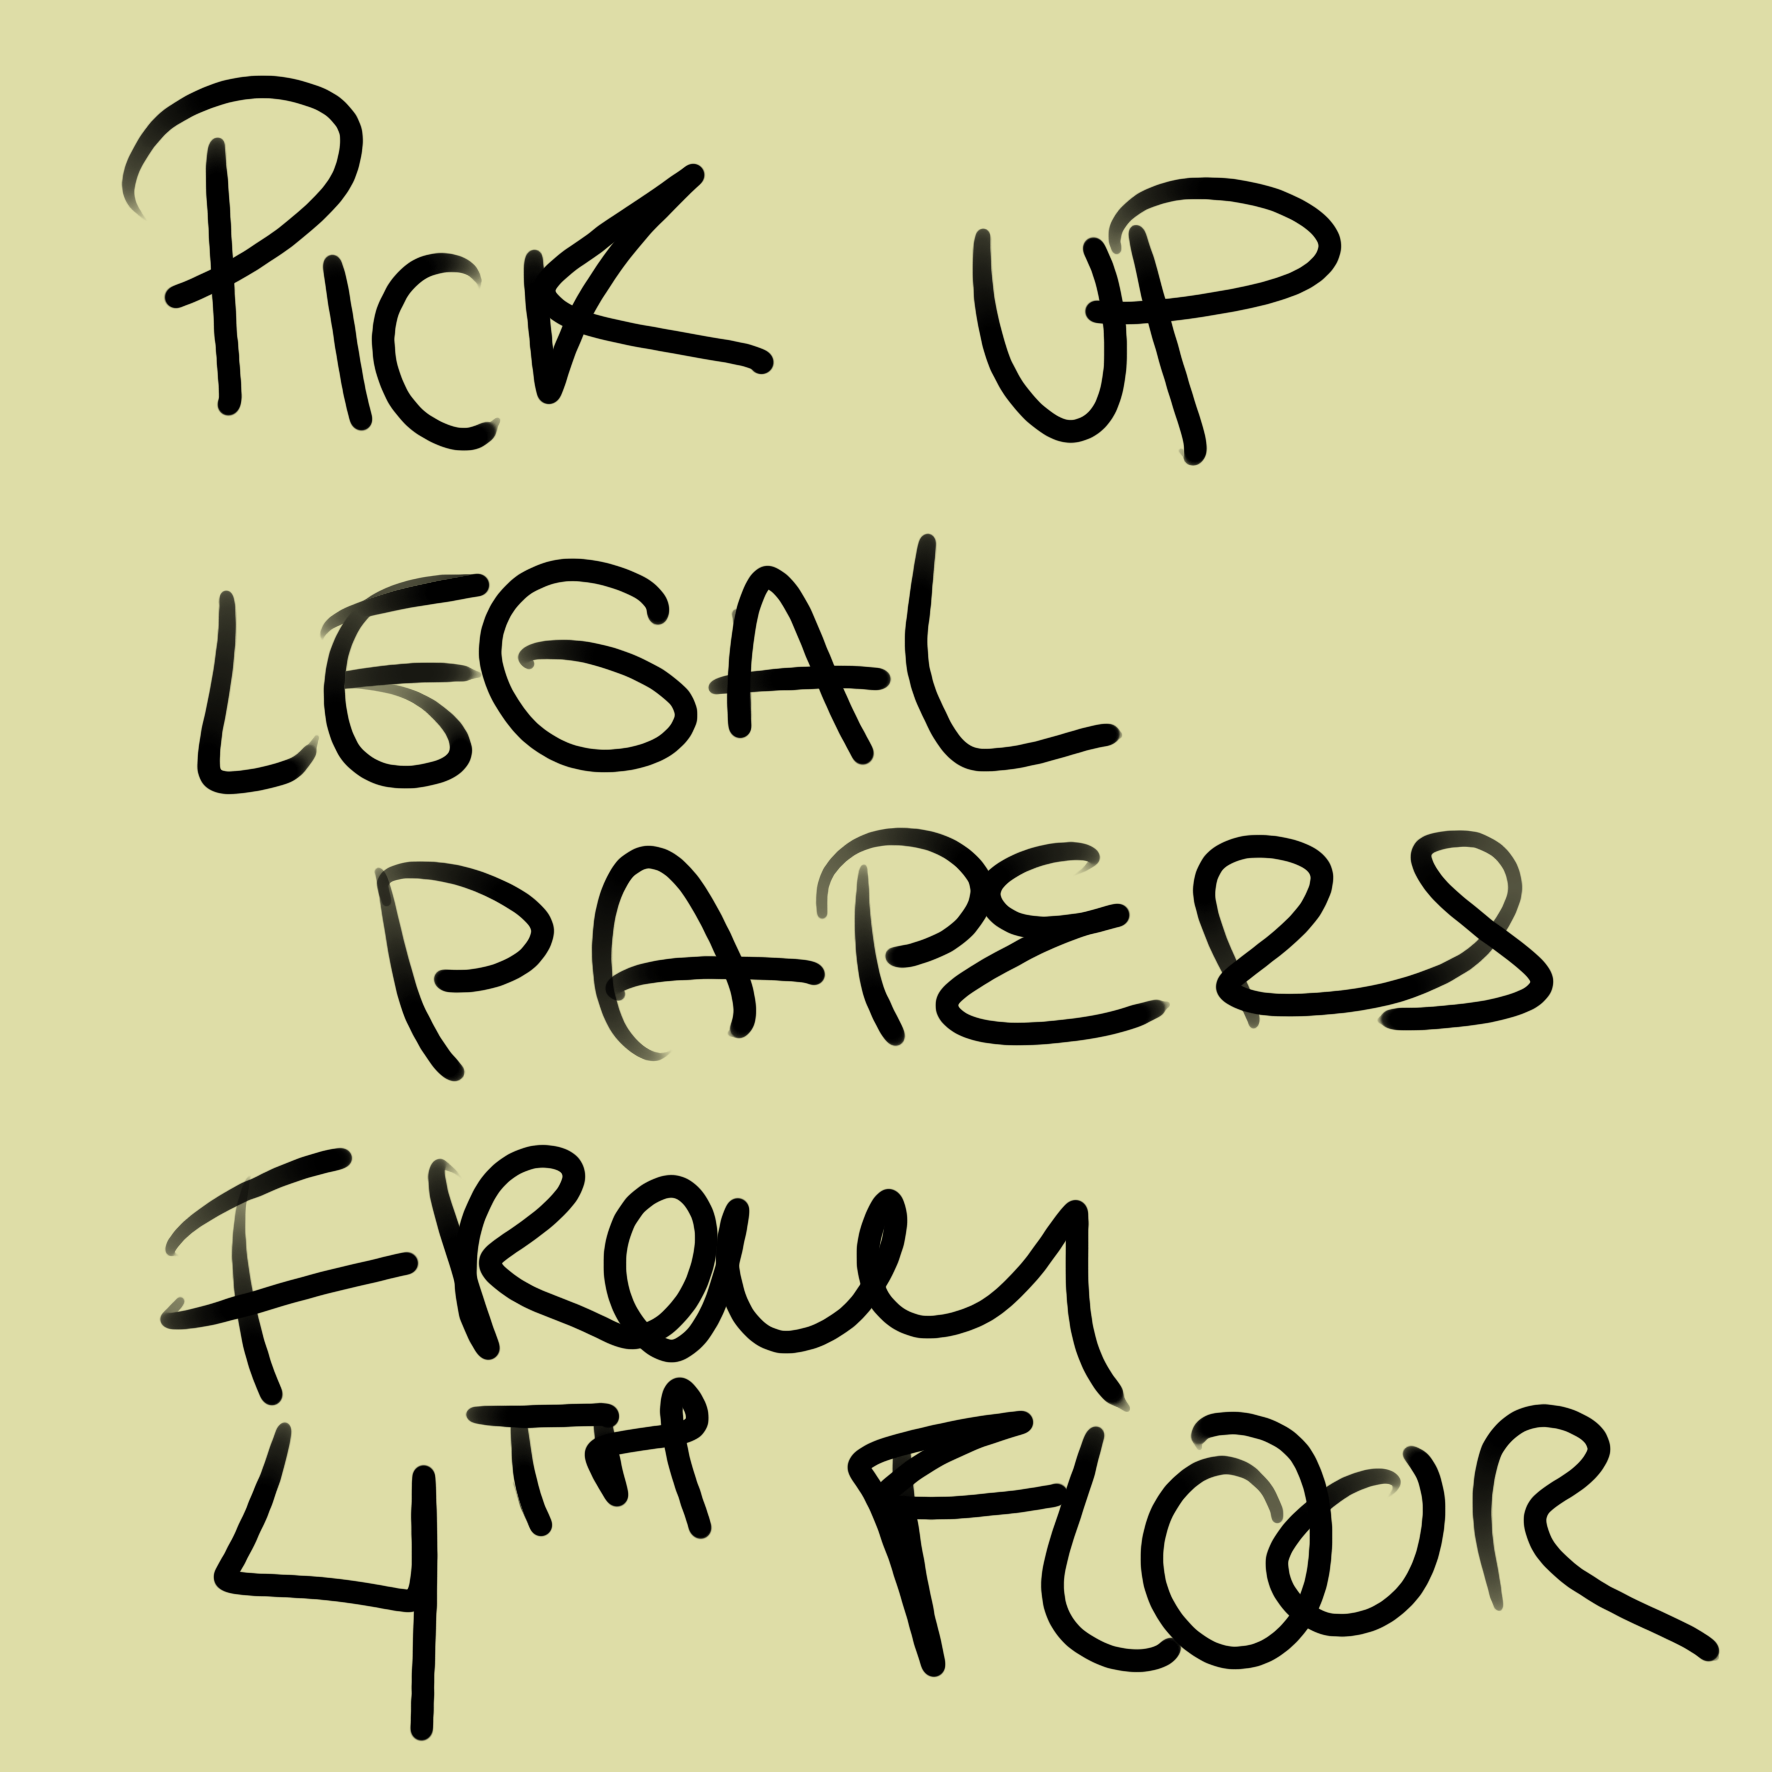 PICK UP
LEGAL
PAPERS
FROM
4TH FLOOR